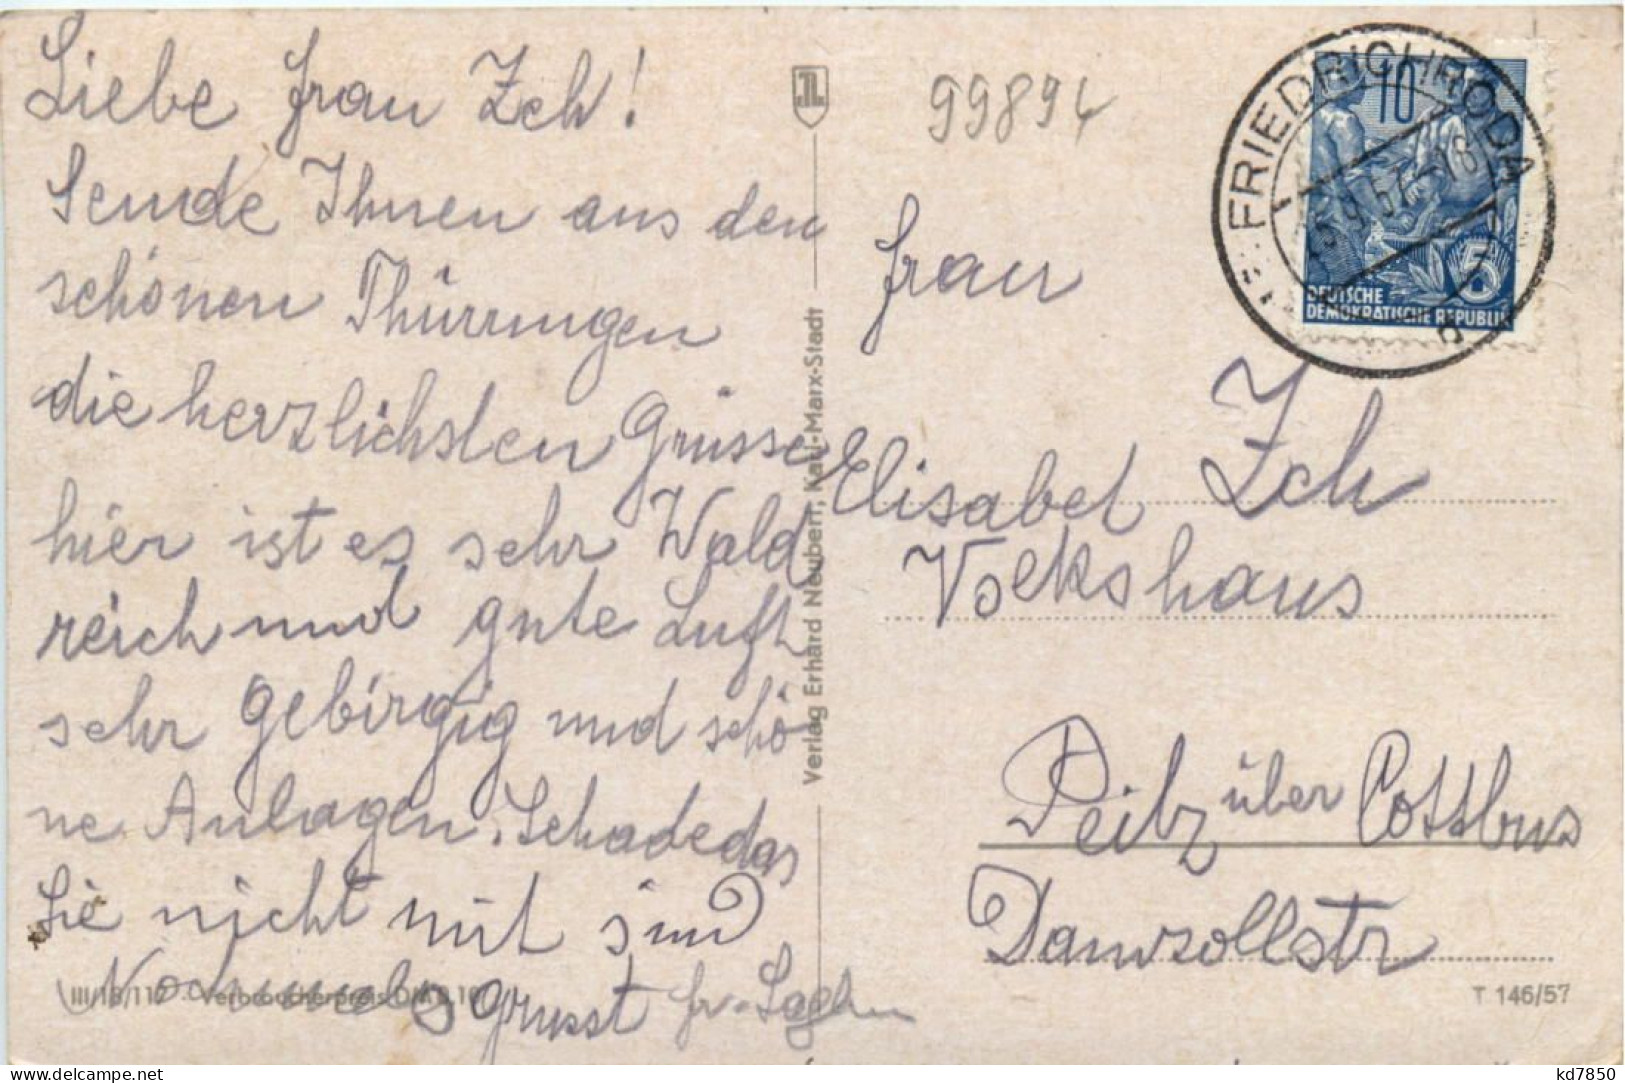 Liebe Frau Zch!
Sende Ihnen aus den
schönen Thürringen
die herzlichsten Grüsse
hier ist es sehr Wald
reich und gute Luft
sehr gebirgig und schö
ne Anlagen. Schade das
Sie nicht mit sind
Nochmals grusst fr.
III/18/117 Verbraucherpreis DM 0,10
Verlag Erhard Neubert, Karl-Marx-Stadt
99894
FRIEDRICHRODA
9.57-18
b
10
5
DEUTSCHE
DEMOKRATISCHE REPUBLIK
Frau
Elisabet Zch
Volkshaus
Peitz über Cottbus
T 146/57
kd7850